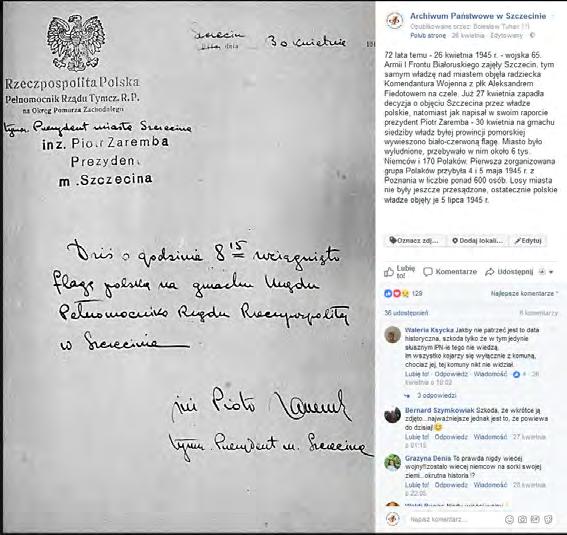 Szczecin
dnia 30 kwietnia 194
Rzeczpospolita Polska
Pełnomocnik Rządu Tymcz. R.P.
na Okręg Pomorza Zachodniego
tymcz. Prezydent miasta Szczecina
inż. Piotr Zaremba
Prezydent
m .Szczecina
Dziś o godzinie 8 15 wciągnięto
flagę polską na gmachu Urzędu
Pełnomocnika Rządu Rzeczypospolitej
w Szczecinie
inż Piotr Zaremba
tymcz. Prezydent m. Szczecina
Archiwum Państwowe w Szczecinie
Opublikowane przez: Bolesław Tuhac
Polub stronę · 26 kwietnia · Edytowany ·
72 lata temu - 26 kwietnia 1945 r. - wojska 65.
Armii I Frontu Białoruskiego zajęły Szczecin, tym
samym władzę nad miastem objęła radziecka
Komendantura Wojenna z płk Aleksandrem
Fiedotowem na czele. Już 27 kwietnia zapadła
decyzja o objęciu Szczecina przez władze
polskie, natomiast jak napisał w swoim raporcie
prezydent Piotr Zaremba - 30 kwietnia na gmachu
siedziby władz byłej prowincji pomorskiej
wywieszono biało-czerwoną flagę. Miasto było
wyludnione, przebywało w nim około 6 tys.
Niemców i 170 Polaków. Pierwsza zorganizowana
grupa Polaków przybyła 4 i 5 maja 1945 r. z
Poznania w liczbie ponad 600 osób. Losy miasta
nie były jeszcze przesądzone, ostatecznie polskie
władze objęły je 5 lipca 1945 r.
Oznacz zdj... Dodaj lokali... Edytuj
Lubię to! Komentarze Udostępnij
129 Najlepsze komentarze
36 udostępnień 6 komentarzy
Waleria Ksycka Jakby nie patrzeć jest to data
historyczna, szkoda tylko ze w tym jedynie
słusznym IPN-ie tego nie wiedzą.
Im wszystko kojarzy się wyłącznie z komuną,
chociaż jej, tej komuny nikt nie widział.
Lubię to! · Odpowiedz · Wiadomość · 4 · 26
kwietnia o 18:02
3 odpowiedzi
Bernard Szymkowiak Szkoda, ze wkrótce ją
zdjęto...najważniejsze jednak jest to, że powiewa
do dzisiaj!
Lubię to! · Odpowiedz · Wiadomość · 27 kwietnia
o 01:15
Grazyna Denis To prawda nigdy wiecej
wojny!!zostalo wiecej niemcow na sorki swojej
ziemi...okrutna historia !?
Lubię to! · Odpowiedz · Wiadomość · 26 kwietnia
o 22:05
Napisz komentarz...